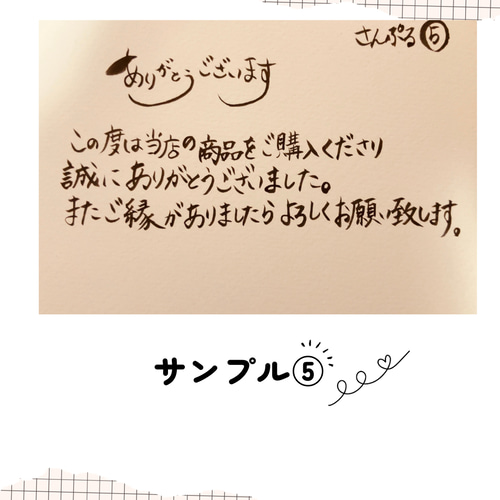 さんぷる⑤
ありがとうございます
この度は当店の商品をご購入くださり
誠にありがとうございました。
またご縁がありましたらよろしくお願い致します。
サンプル⑤